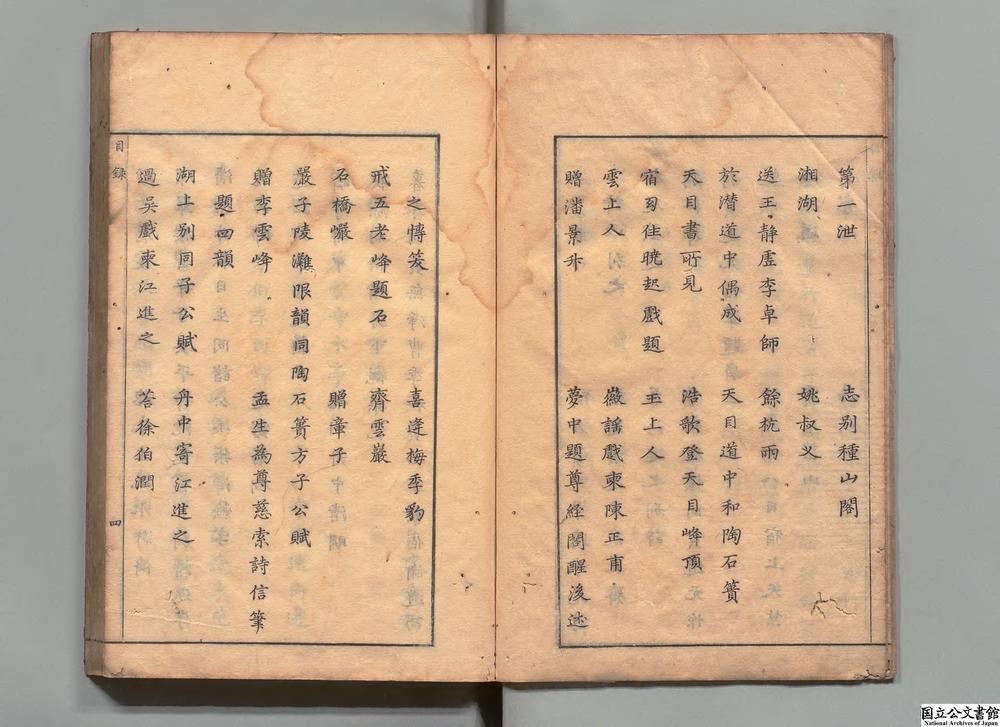 第一泄　志别種山閣
湘湖　姚叔乂
送王静虛李卓師　餘杭雨
於潛道中偶成　天目道中和陶石簣
天目書所見　浩歌登天目峰頂
宿幻住曉起戲題　玉上人
雲上人　嶶謠戲柬陳正甫
贈潘景升　夢中題尊經閣醒後述
之愽笑　喜逢梅季豹
戒五老峰題石　齊雲巖
石橋巗　贈章子
嚴子陵灘限韻同陶石簣方子公賦
贈李雲峰　孟生為尊慈索詩信筆
題四韻
湖上别同子公賦　舟中寄江進之
過吳戲柬江進之　荅徐伯潤
目録
四
国立公文書館
National Archives of Japan